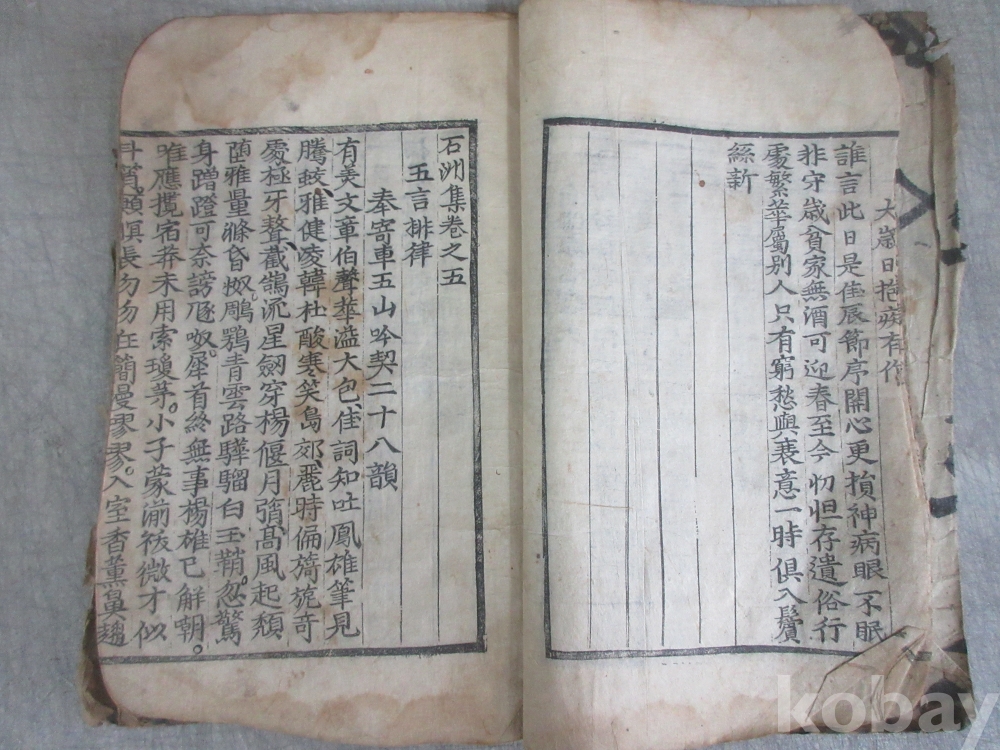 大歲日抱疾有作
誰言此日是佳辰節序關心更損神病眼不眠
非守歲貧家無酒可迎春至今忉怛存遺俗行
處繁華屬別人只有窮愁與衰意一時俱入鬢
絲新
石洲集卷之五
五言排律
奉寄車五山吟契二十八韻
有美文章伯聲華溢大包佳詞知吐鳳雄筆見
騰蛟雅健凌韓杜酸寒笑島郊麗時偏旖旎奇
處極牙聱截鵠流星劒穿楊偃月弰高風起頹
墮雅量滌昏怓鵰鶚青雲路驊騮白玉鞘忽驚
身蹭蹬可奈謗隱呶犀首終無事楊雄已解嘲
唯應攬宿莽未用索瓊茅小子蒙湔祓微才似
斗筲願俱長勿勿在簡曼膠膠入室香薰鼻趨
kobay